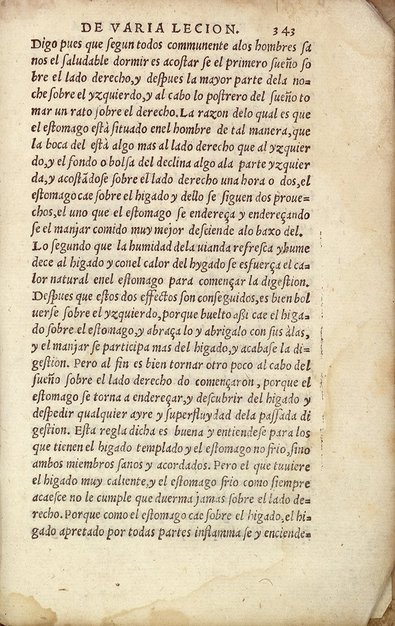 DE VARIA LECION. 343
Digo pues que segun todos communente alos hombres sa
nos el saludable dormir es acostar se el primero sueño so
bre el lado derecho, y despues la mayor parte dela no-
che sobre el yzquierdo, y al cabo lo postrero del sueño to
mar un rato sobre el derecho. La razon delo qual es que
el estomago està situado enel hombre de tal manera, que
la boca del està algo mas al lado derecho que al yzquier
do, y el fondo o bolsa del declina algo ala parte yzquier
da, y acostãdose sobre el lado derecho una hora o dos, el
estomago cae sobre el higado y dello se siguen dos proue=
chos, el uno que el estomago se endereça y endereçando
se el manjar comido muy mejor desciende alo baxo del.
Lo segundo que la humidad dela uianda refresca yhume
dece al higado y conel calor del hygado se esfuerça el ca=
lor natural enel estomago para començar la digestion.
Despues que estos dos effectos son conseguidos, es bien bol
uerse sobre el yzquierdo, porque buelto assi cae el higa=
do sobre el estomago, y abraça lo y abrigalo con sus àlas,
y el manjar se participa mas del higado, y acabase la di=
gestion. Pero al fin es bien tornar otro poco al cabo del
sueño sobre el lado derecho do començaron, porque el
estomago se torna a endereçar, y descubrir del higado y
despedir qualquier ayre y superfluydad dela passada di
gestion. Esta regla dicha es buena y entiendese para los
que tienen el higado templado y el estomago no frio, sino
ambos miembros sanos y acordados. Pero el que tuuiere
el higado muy caliente, y el estomago frio como siempre
acaesce no le cumple que duerma jamas sobre el lado de=
recho. Porque como el estomago cae sobre el higado, el hi=
gado apretado por todas partes inflamma se y enciende=